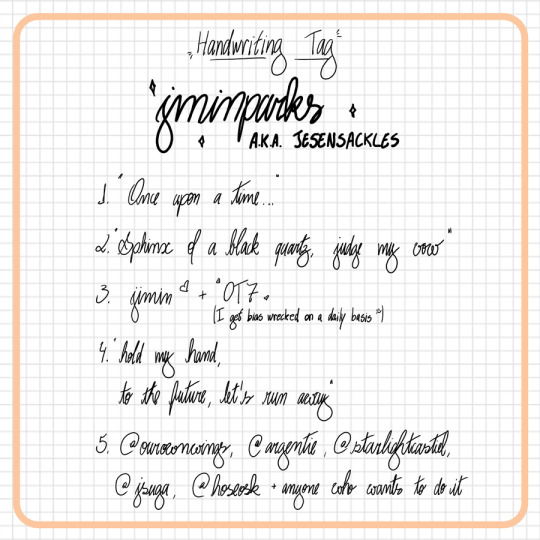 "Handwriting Tag"
jiminparks
A.K.A. JESENSACKLES
1. "Once upon a time..."
2. "Sphinx of a black quartz, judge my vow"
3. jimin ♡ + "OT7"
(I get bias wrecked on a daily basis :))
4. "hold my hand,
to the future, let's run away"
5. @ouroeonwings, @argentie, @starlightcastiel,
@jsuga, @hoseosk + anyone who wants to do it